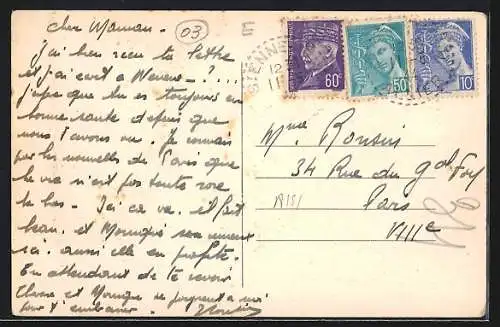 Cher Maman.
03
J'ai bien reçu ta lettre
et j'ai écrit a ? ...
J'espère que tu es toujours en
bonne santé depuis que
nous t'avons vu. Je connais
par les nouvelles de Paris que
la vie n'est pas toute rose
là bas. Ici ça va. et fait
beau. et Monique
ici. aussi elle en profite.
En attendant de te revoir
et Monique se joignent a moi
pour t'embrasser.
60c
50c
10c
12
Mme Ronsin
34 Rue du Gal Foy
Paris
VIIIe